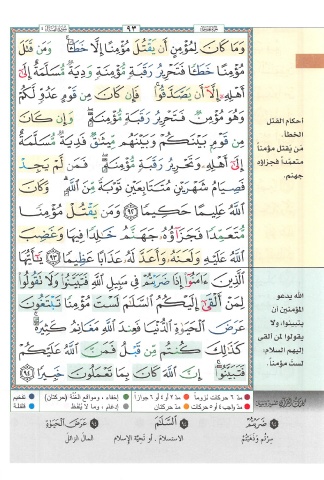 ٩٣
وَمَا كَانَ لِمُؤْمِنٍ أَن يَقْتُلَ مُؤْمِنًا إِلَّا خَطَـًٔا ۚ وَمَن قَتَلَ
مُؤْمِنًا خَطَـًٔا فَتَحْرِيرُ رَقَبَةٍ مُّؤْمِنَةٍ وَدِيَةٌ مُّسَلَّمَةٌ إِلَىٰٓ
أَهْلِهِۦٓ إِلَّآ أَن يَصَّدَّقُوا۟ ۚ فَإِن كَانَ مِن قَوْمٍ عَدُوٍّ لَّكُمْ
وَهُوَ مُؤْمِنٌ فَتَحْرِيرُ رَقَبَةٍ مُّؤْمِنَةٍ ۖ وَإِن كَانَ
مِن قَوْمٍۭ بَيْنَكُمْ وَبَيْنَهُم مِّيثَـٰقٌ فَدِيَةٌ مُّسَلَّمَةٌ
إِلَىٰٓ أَهْلِهِۦ وَتَحْرِيرُ رَقَبَةٍ مُّؤْمِنَةٍ ۖ فَمَن لَّمْ يَجِدْ
فَصِيَامُ شَهْرَيْنِ مُتَتَابِعَيْنِ تَوْبَةً مِّنَ ٱللَّهِ ۗ وَكَانَ
ٱللَّهُ عَلِيمًا حَكِيمًا ٩٢ وَمَن يَقْتُلْ مُؤْمِنًا
مُّتَعَمِّدًا فَجَزَآؤُهُۥ جَهَنَّمُ خَـٰلِدًا فِيهَا وَغَضِبَ
ٱللَّهُ عَلَيْهِ وَلَعَنَهُۥ وَأَعَدَّ لَهُۥ عَذَابًا عَظِيمًا ٩٣ يَـٰٓأَيُّهَا
ٱلَّذِينَ ءَامَنُوٓا۟ إِذَا ضَرَبْتُمْ فِى سَبِيلِ ٱللَّهِ فَتَبَيَّنُوا۟ وَلَا تَقُولُوا۟
لِمَنْ أَلْقَىٰٓ إِلَيْكُمُ ٱلسَّلَـٰمَ لَسْتَ مُؤْمِنًا تَبْتَغُونَ
عَرَضَ ٱلْحَيَوٰةِ ٱلدُّنْيَا فَعِندَ ٱللَّهِ مَغَانِمُ كَثِيرَةٌ ۚ
كَذَٰلِكَ كُنتُم مِّن قَبْلُ فَمَنَّ ٱللَّهُ عَلَيْكُمْ
فَتَبَيَّنُوٓا۟ ۚ إِنَّ ٱللَّهَ كَانَ بِمَا تَعْمَلُونَ خَبِيرًا ٩٤
أحكام القتل
الخطأ.
من يقتل مؤمناً
متعمداً فجزاؤه
جهنم.
الله يدعو
المؤمنين أن
يتبينوا، ولا
يقولوا لمن ألقى
إليهم السلام:
لست مؤمناً.
مد ٦ حركات لزوماً مد ٢ أو ٤ أو ٦ جوازاً إخفاء، ومواقع الغنة (حركتان) تفخيم
مد واجب ٤ أو ٥ حركات مد حركتان إدغام، وما لا يلفظ قلقلة
٩٤ ضَرَبْتُمْ
سرتم وذهبتم
٩٤ السَّلَمَ
الاستسلام، أو تحية الإسلام
٩٤ عَرَضَ الْحَيَوٰةِ
المال الزائل